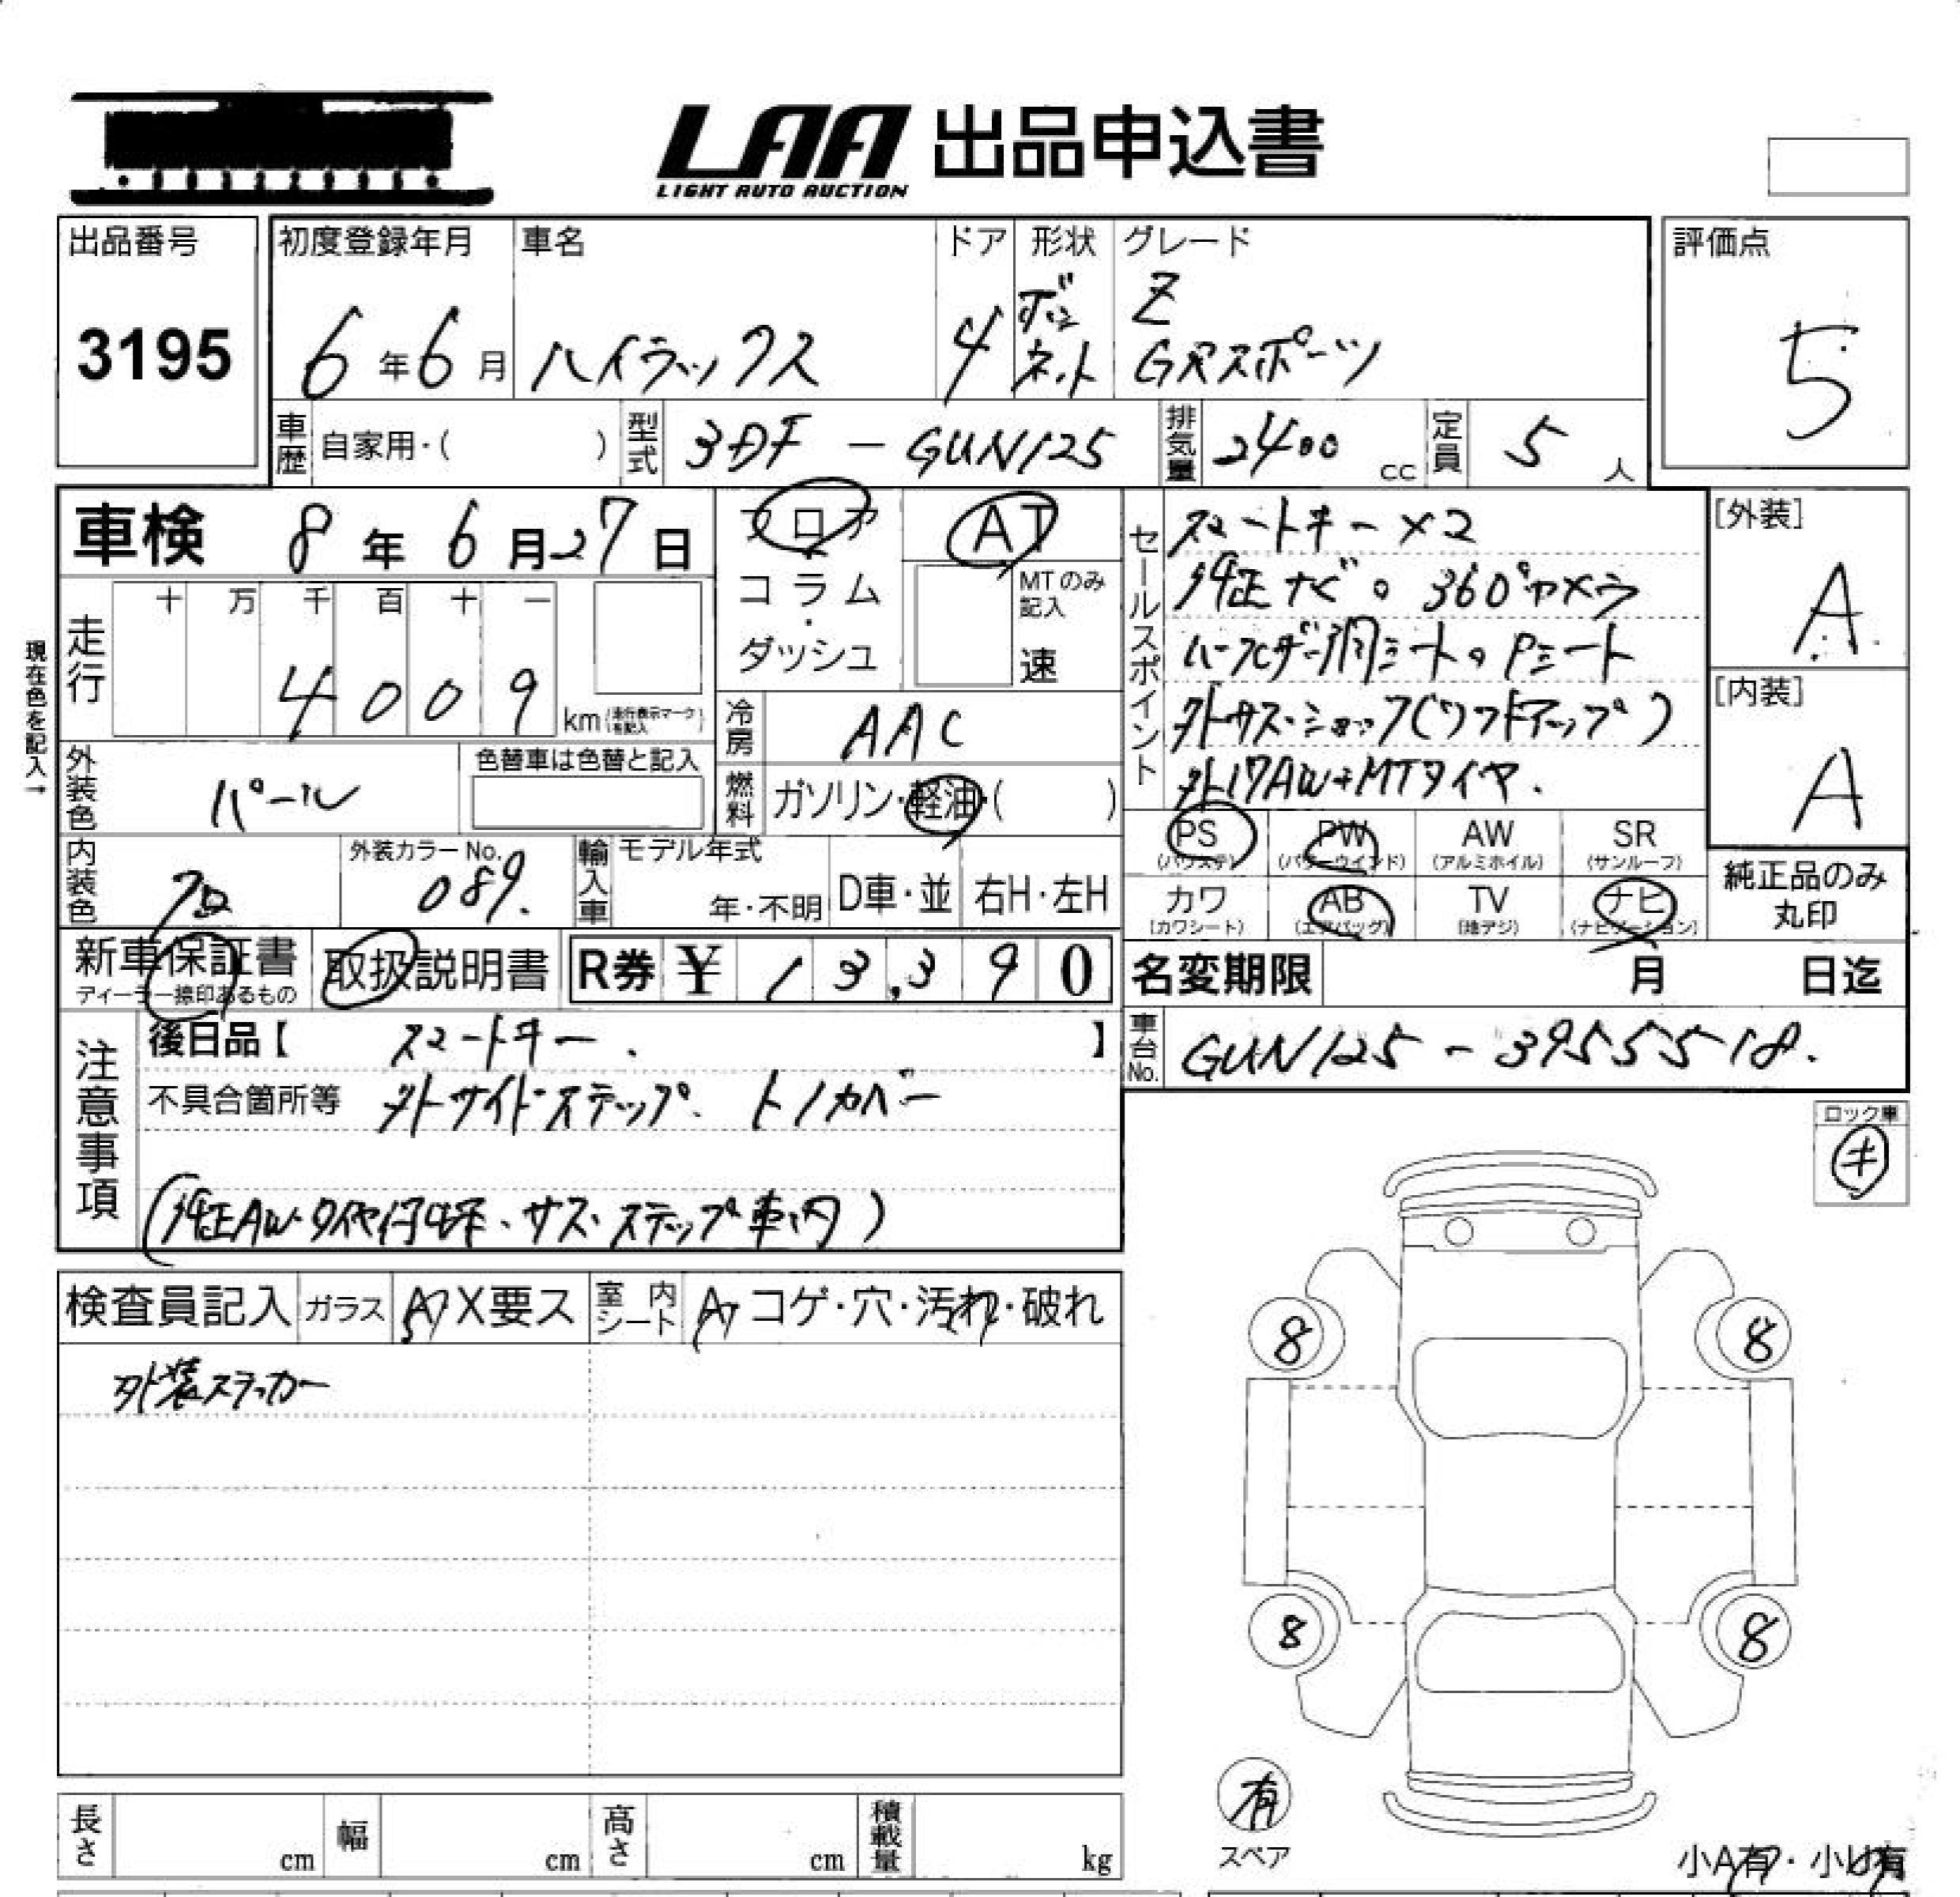 LAA 出品申込書
LIGHT AUTO AUCTION
出品番号
3195
初度登録年月
6年6月
車名
ハイラックス
ドア
4
形状
ボンネット
グレード
Z
GRスポーツ
評価点
5
車歴 自家用・( )
型式 3DF - GUN125
排気量 2400 cc
定員 5 人
車検 8年6月27日
フロア
コラム
・
ダッシュ
AT
MTのみ記入
速
走行 十 万 千 百 十 一
4 0 0 9 km (走行表示マークを記入)
現在色を記入→
冷房 AAC
燃料 ガソリン・軽油・( )
外装色 パール
色替車は色替と記入
内装色 クロ
外装カラーNo. 089.
輸入車 モデル年式
年・不明 D車・並 右H・左H
セールスポイント
スマートキー×2
純正ナビ。360°カメラ
ハーフレザー調シート。Pシート
外サス・ショック(リフトアップ)
外17AW+MTタイヤ.
[外装]
A
[内装]
A
PS (パワステ) PW (パワーウインド) AW (アルミホイル) SR (サンルーフ)
カワ (カワシート) AB (エアバッグ) TV (地デジ) ナビ (ナビゲーション)
純正品のみ
丸印
新車保証書
ディーラー捺印あるもの
取扱説明書
R券 ¥ 13,390
名変期限 月 日迄
車台No. GUN125-3955518.
注意事項
後日品【 スマートキー. 】
不具合箇所等 外サイドステップ. トノカバー
(純正AW・タイヤ付、サス・ステップ車内)
ロック車
キ
検査員記入 ガラス A X要ス 室内シート A・コゲ・穴・汚れ・破れ
外装ステッカー
8 8
8 8
有
スペア
小A有・小U有
長さ cm 幅 cm 高さ cm 積載量 kg